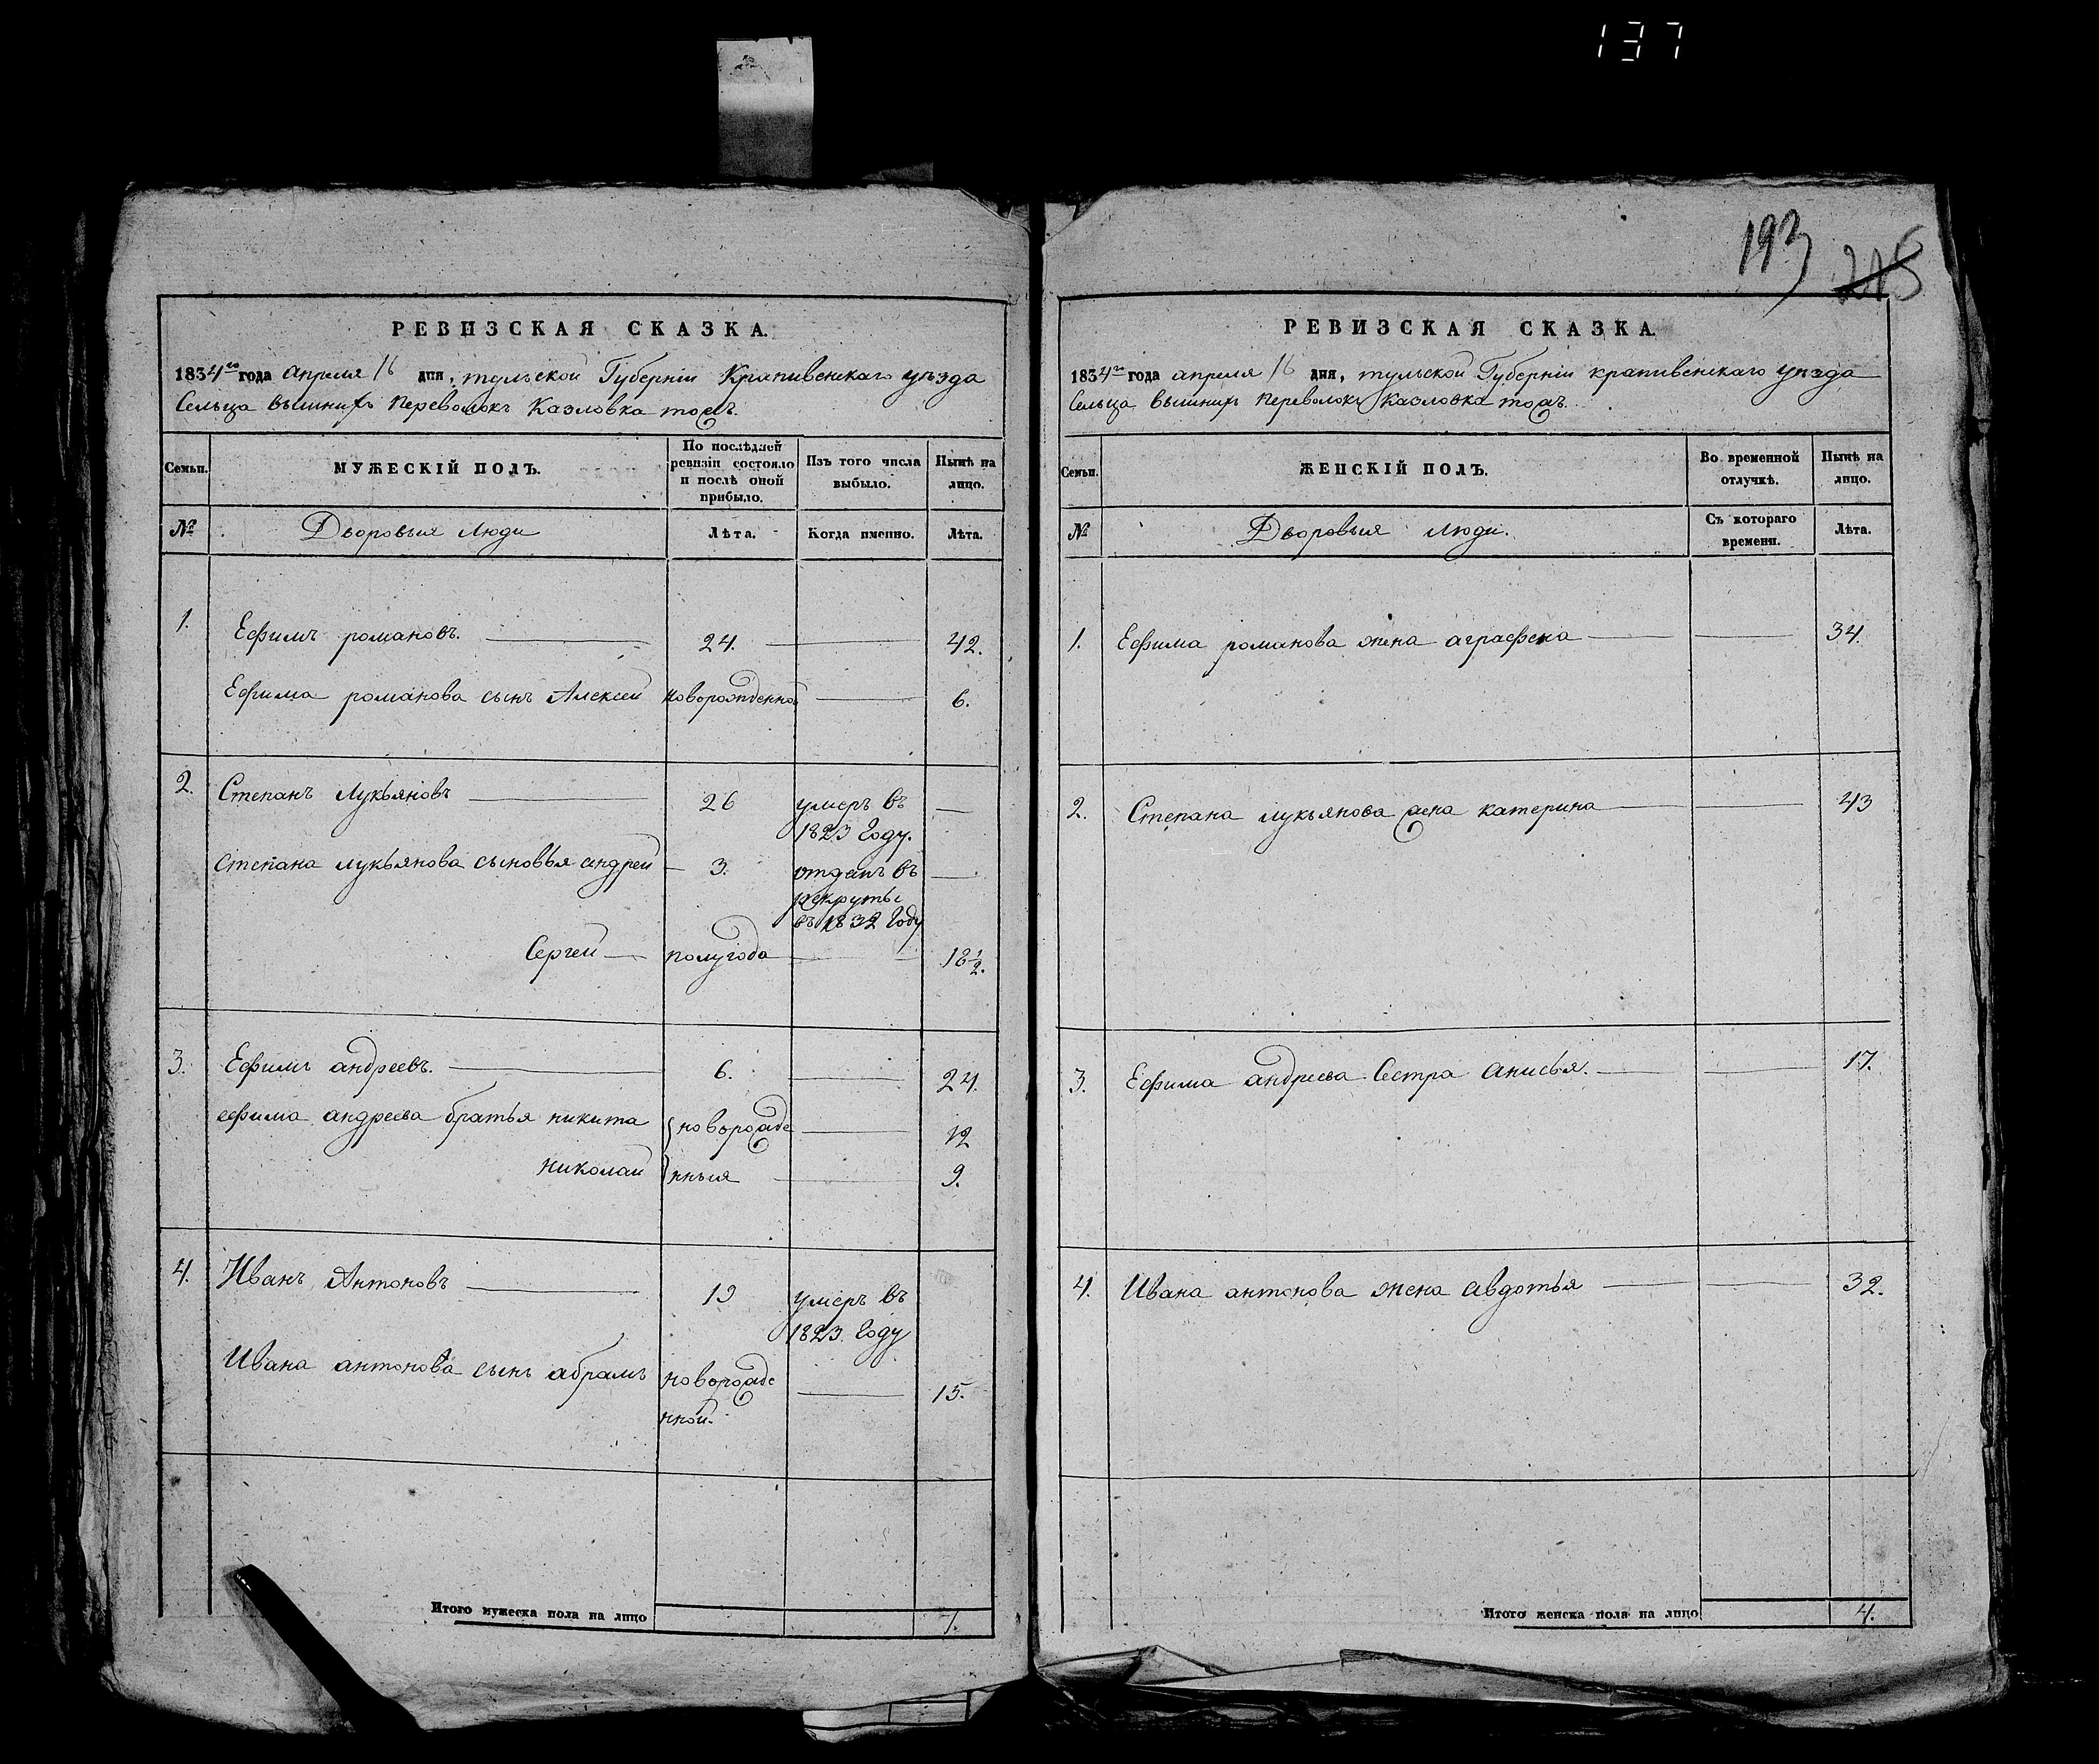 137
193
215
РЕВИЗСКАЯ СКАЗКА.
1834го года апреля 16 дня, тульской Губерніи Крапивенскаго уѣзда
Сельца вышнихъ Переволокъ Казловка тожъ.
Семьи.
МУЖЕСКІЙ ПОЛЪ.
По послѣдней ревизіи состояло и послѣ оной прибыло.
Изъ того числа выбыло.
Нынѣ на лицо.
№
Дворовыя Люди
Лѣта.
Когда именно.
Лѣта.
1. Ефимъ романовъ. 24. 42.
Ефима романова сынъ Алексей новорожденной 6.
2. Степанъ Лукьяновъ 26 умеръ въ
1823 Году.
Степана лукьянова сыновья андрей 3. отданъ въ
рекруты
въ 1832 Году
Сергей полугода 18½.
3. Ефимъ андреевъ. 6. 24.
ефима андреева братья никита новорожде 12
николай нныя 9.
4. Иванъ Антоновъ 19 умеръ въ
1823 Году
Ивана антонова сынъ абрамъ новорожде 15.
нной.
Итого мужеска пола на лицо 7.
РЕВИЗСКАЯ СКАЗКА.
1834го года апреля 16 дня, тульской Губерніи крапивенскаго уѣзда
Сельца вышнихъ Переволокъ Казловка тожъ.
Семьи.
ЖЕНСКІЙ ПОЛЪ.
Во временной отлучкѣ.
Нынѣ на лицо.
№
Дворовыя люди.
Съ котораго времени.
Лѣта.
1. Ефима романова жена аграфена 34.
2. Степана лукьянова жена катерина 43
3. Ефима андреева Сестра анисья. 17.
4. Ивана антонова жена авдотья 32.
Итого женска пола на лицо 4.